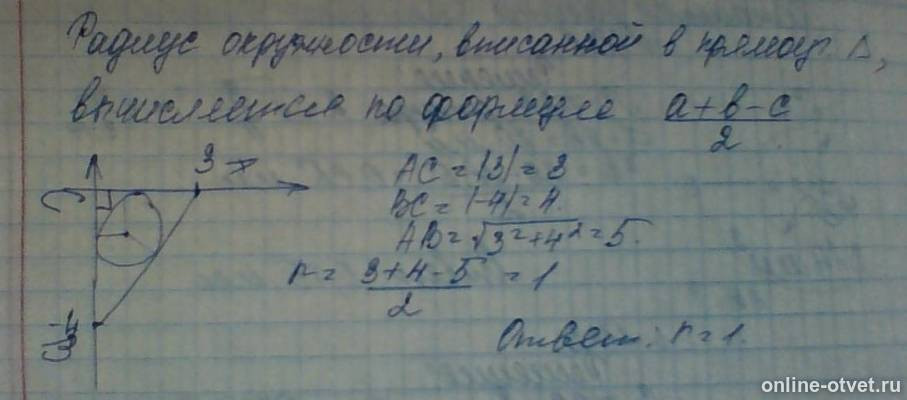 Радиус окружности, вписанной в прямоуг. Δ,
вычисляется по формуле (a+b-c)/2
C 3 A
AC = |3| = 3
BC = |-4| = 4.
AB = √(3²+4²) = 5.
r = (3+4-5)/2 = 1
Ответ: r = 1.
online-otvet.ru